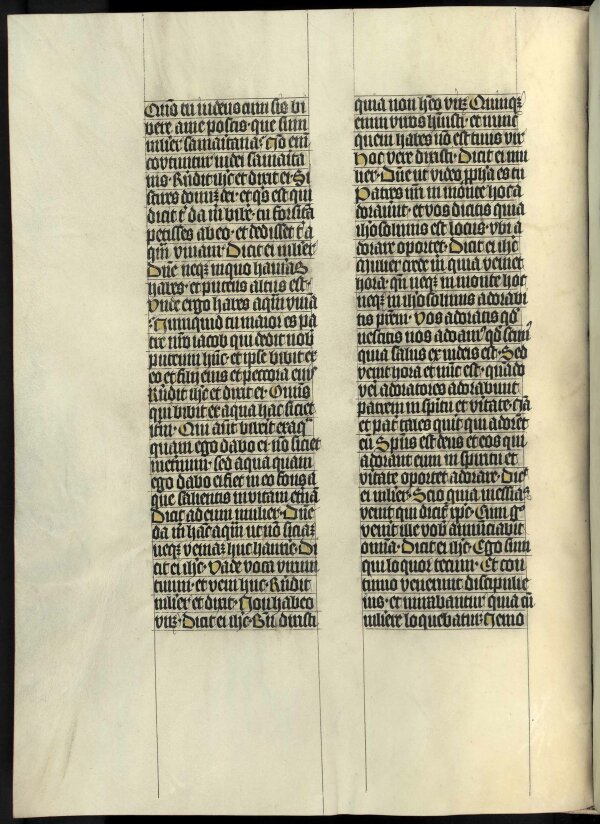 Quō tu iudeus cum sis bi
bere a me poscis · que sum
mulier samaritana · Nō em̄
coutuntur iudei samarita
nis · Rñdit ihc̄ et dixit ei · Si
scires donuꝫ dei · et q̄s est qui
dicit t̄ da m̄ bib̄e · tu forsitā
petisses ab eo · et dedisset t̄ a
qm̄ viuam · Dicit ei mulier ·
Dn̄e neqꝫ in quo haurias
habes · et puteus altus est ·
Vnde ergo habes aqm̄ viuā
Nunquid tu maior es pa
tre nr̄o iacob qui dedit nob̄
puteum hūc · et ipse bibit ex
eo et filij eius et peccora eiꝰ
Rñdit ihc̄ et dixit ei · Omīs
qui bibit ex aqua hac sitiet
itm̄ · Qui aūt biberit ex aq̄
quam ego dabo ei · nō sitiet
in eternum · sed aqua quam
ego dabo ei fiet in eo fons a
que salientis in vitam et̄nā
Dicit ad eum mulier · Dn̄e
da m̄ hāc aqm̄ ut nō sitiaꝫ
neqꝫ veniaꝫ huc haurīe · Di
cit ei ihc̄ · Vade voca virum
tuum · et veni huc · Rñdit
mulier et dixit · Non habeo
virꝫ · Dicit ei ihc̄ · Bn̄ dixisti
quia non hēo virꝫ Quinqꝫ
enim viros hūisti · et nunc
quem habes nō est tuus vir
hoc vere dixisti · Dicit ei mu
lier · Dn̄e ut video ꝓpha es tu
Patres nr̄i in monte hoc a
dorauūt · et vos dicitis quia
iherosolimis est locus · vbi a
dorare oportet · Dicit ei ihc̄
Mulier crede m̄ quia veniet
hora · qn̄ neqꝫ in monte hoc
neqꝫ in iherosolimis adorabi
tis pr̄em · Vos adoratis qd̄
nescitis nos adoamꝰ qd̄ scimꝰ
quia salus ex iudeis est · Sed
venit hora et nūc est · quādo
veri adoratores adorabunt
patrem in spiritu et v̄itate · Nā
et pat̄ tales querit qui adorēt
eū Spūs est deus et eos qui
adorant eum in spiritu et
v̄itate oportet adorare · Dic̄
ei mulier · Scio quia messias
venit qui dicit̄ xpc̄ · Cum g̊
ven̄it ille vob̄ annunciabit
omnia · Dicit ei ihc̄ · Ego sum
qui loquor tecum · Et con
tinuo venerunt discipuli e
ius · et mirabantur quia cū
muliere loquebatur · Nemo